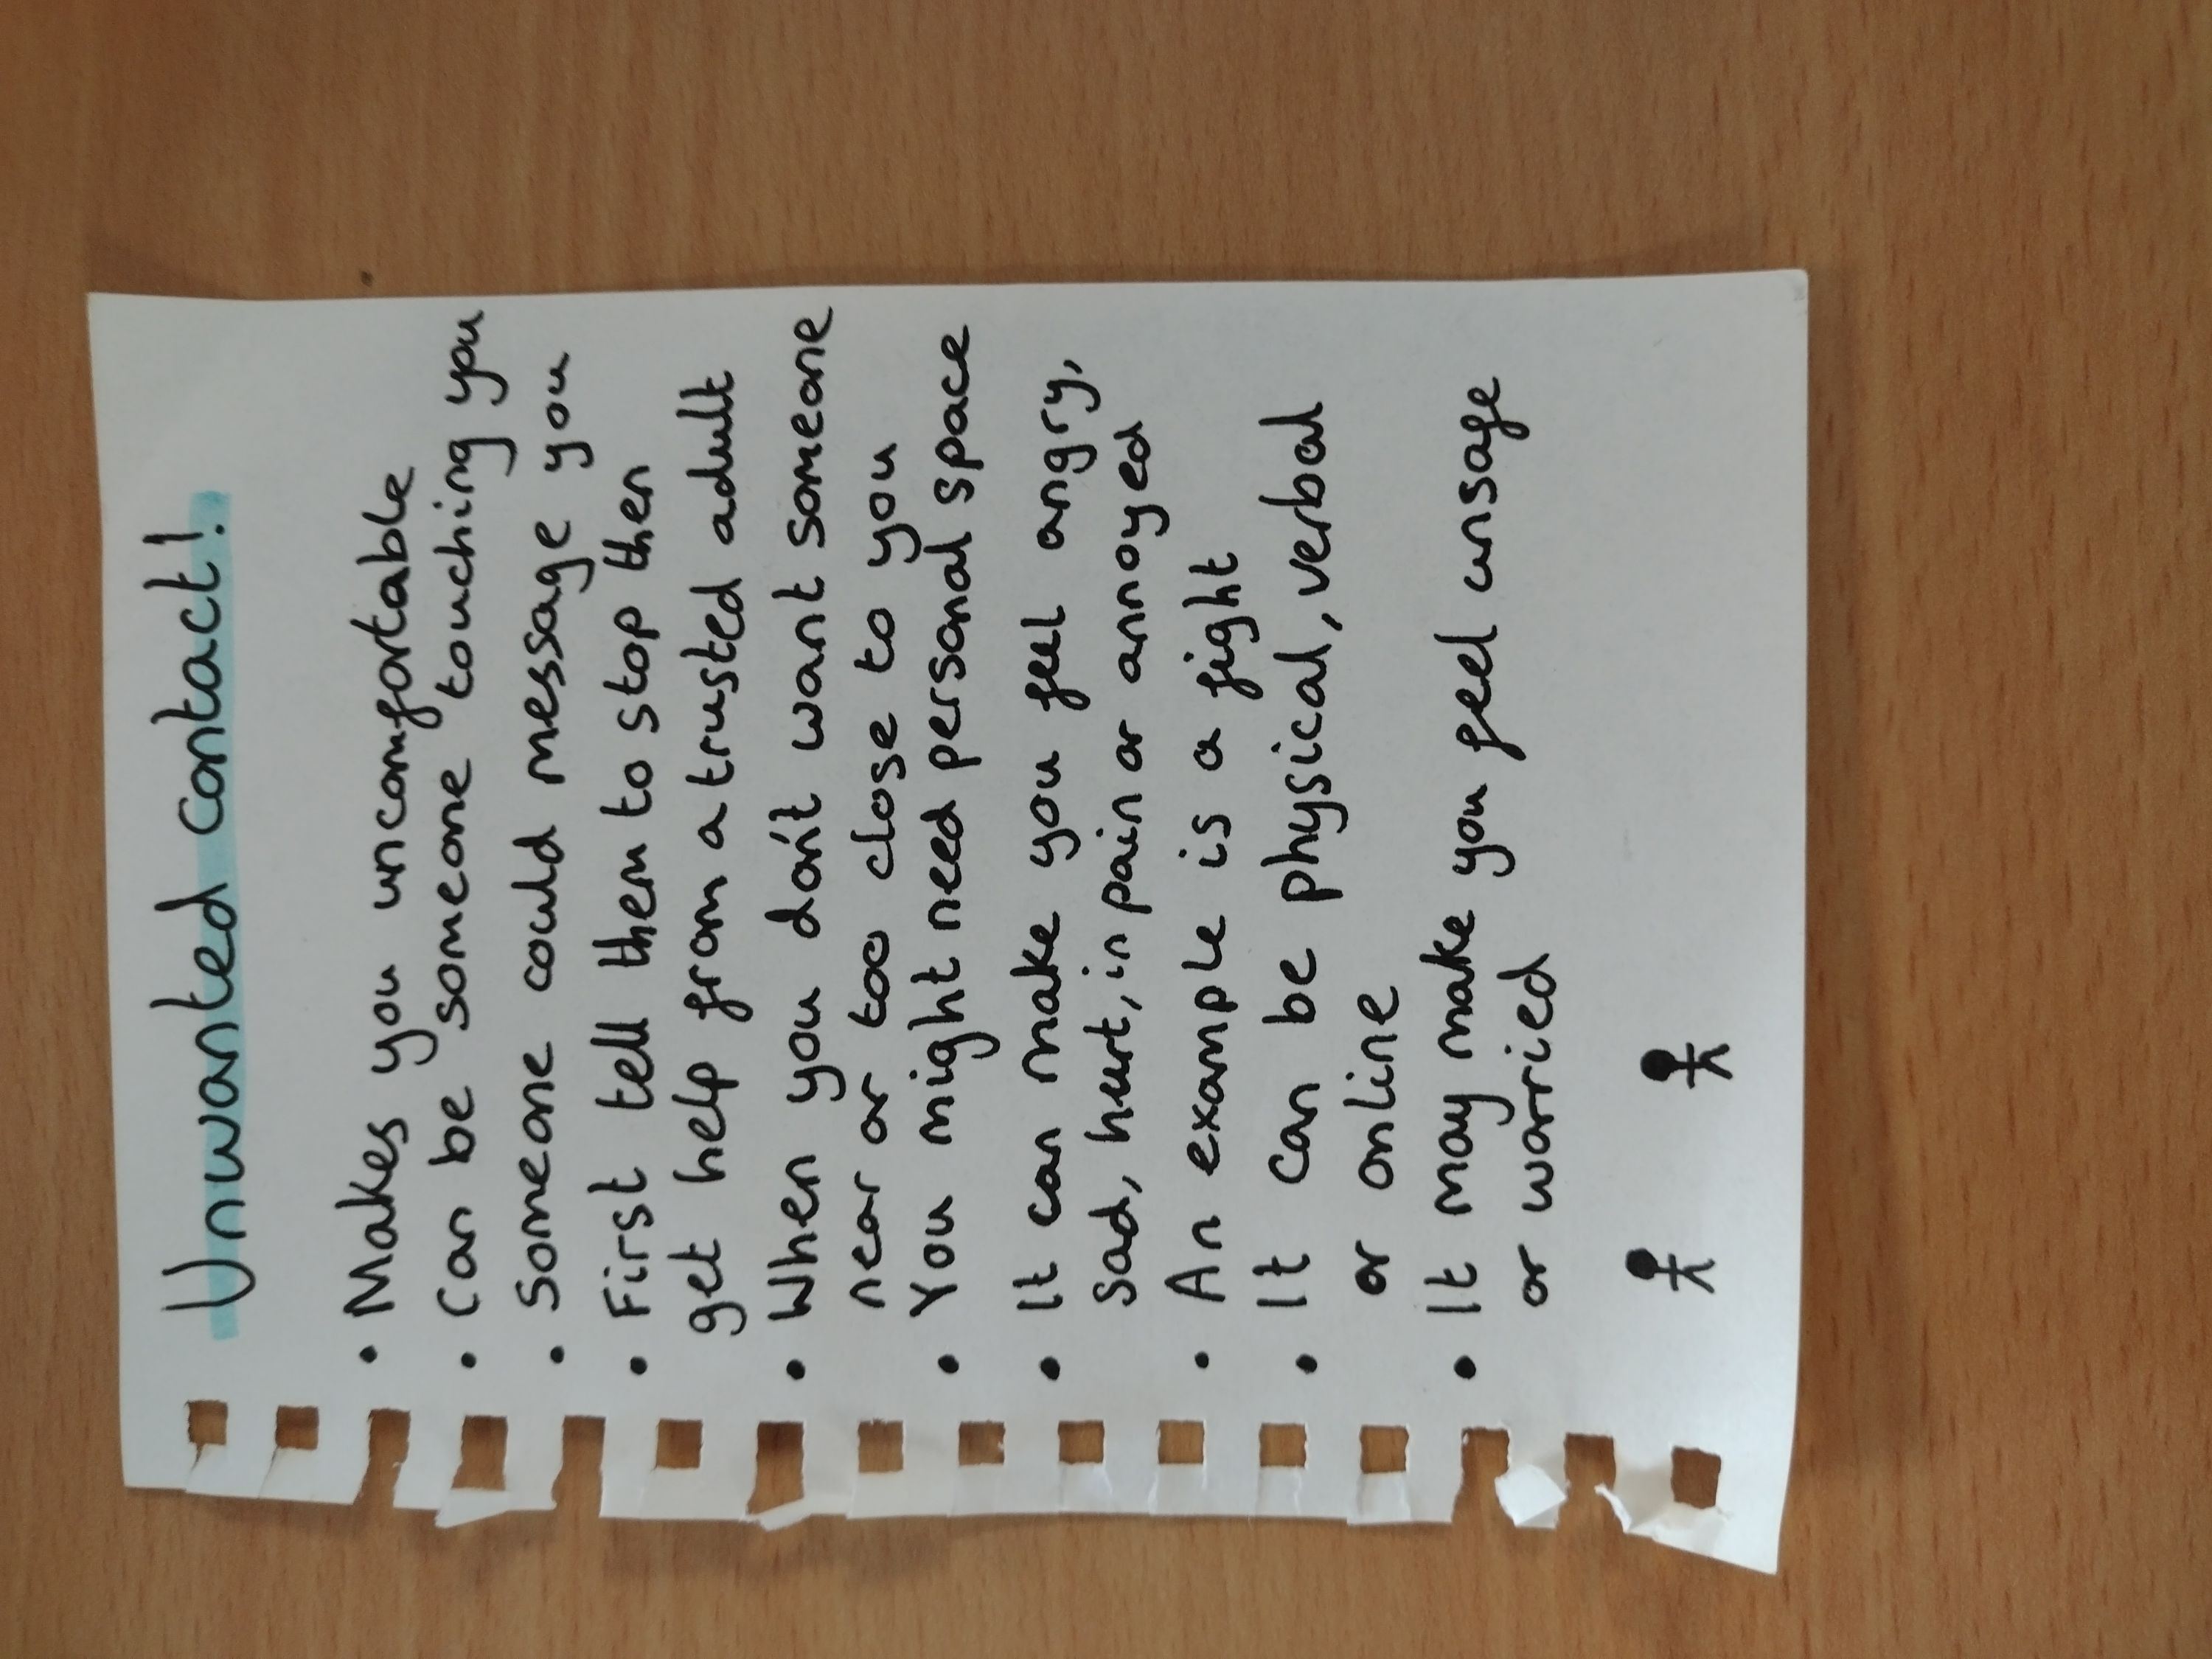 Unwanted contact!
• Makes you uncomfortable
• Can be someone touching you
• Someone could message you
• First tell them to stop then
get help from a trusted adult
• When you don't want someone
near or too close to you
• You might need personal space
• It can make you feel angry,
sad, hurt, in pain or annoyed
• An example is a fight
• It can be physical, verbal
or online
• It may make you feel unsafe
or worried